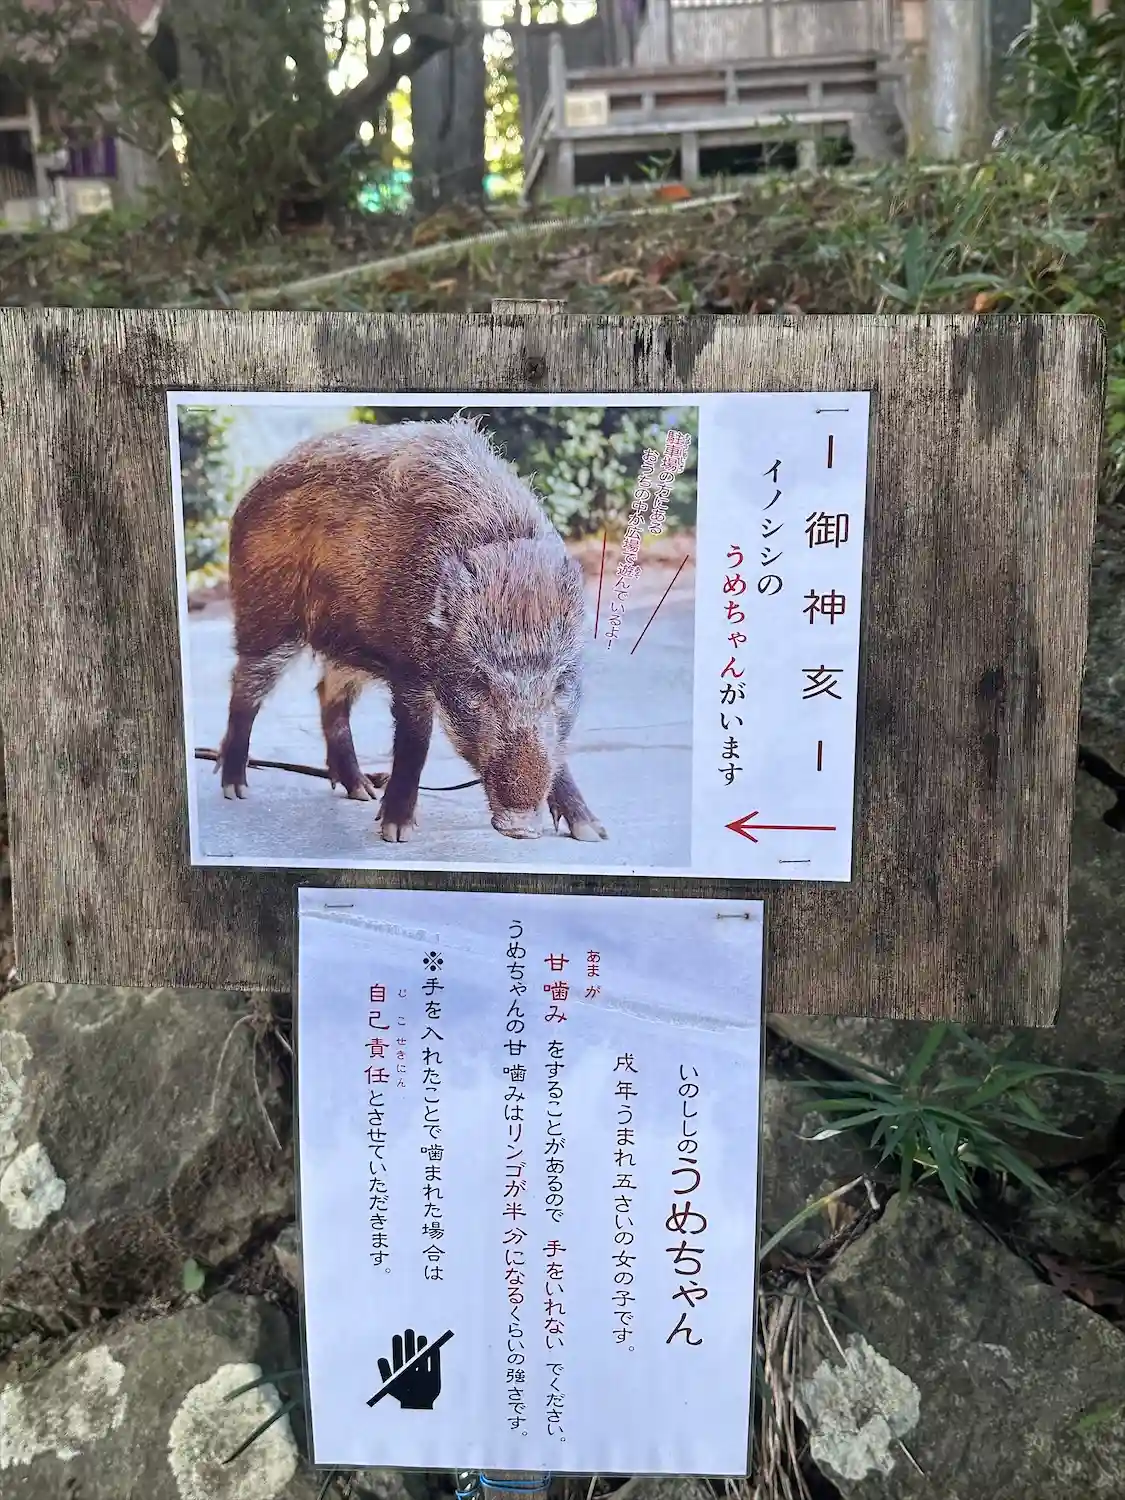 ー御神亥ー
イノシシの
うめちゃんがいます
駐車場の方にある
おうちの中か広場で遊んでいるよ!
いのししのうめちゃん
戌年うまれ五さいの女の子です。
あまが
甘噛みをすることがあるので 手をいれない でください。
うめちゃんの甘噛みはリンゴが半分になるくらいの強さです。
※手を入れたことで噛まれた場合は
じこせきにん
自己責任とさせていただきます。